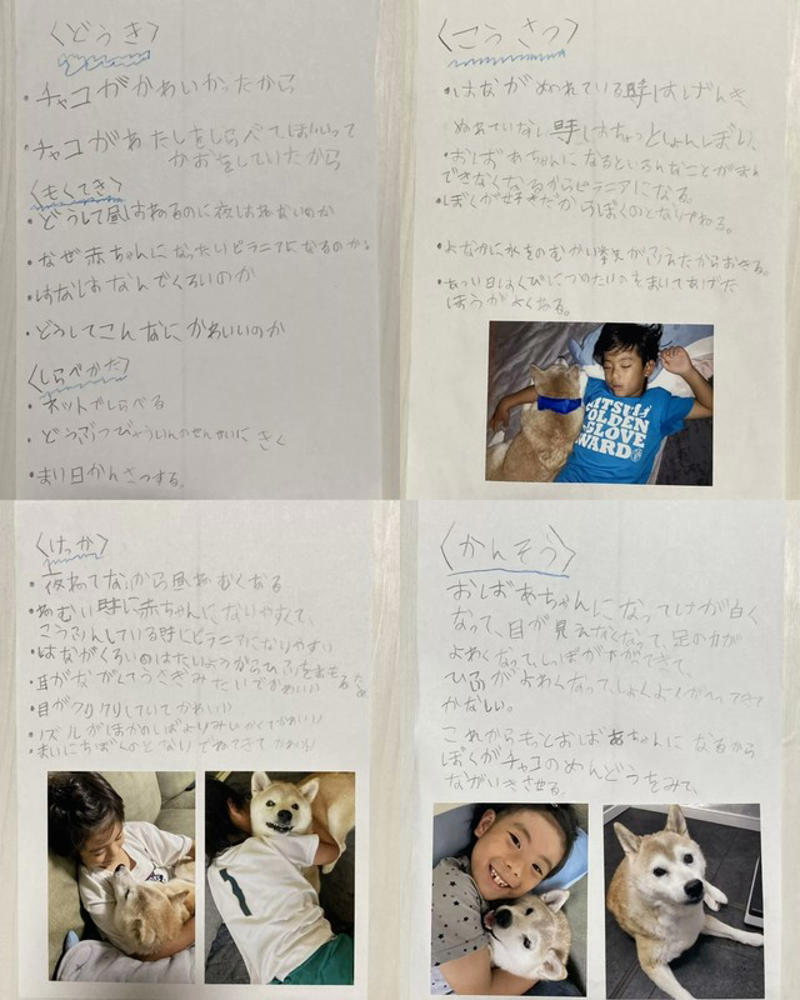 〈どうき〉
・チャコがかわいかったから
・チャコがあたしをしらべてほしいって
かおをしていたから
〈もくてき〉
・どうして昼はねるのに夜はねないのか
・なぜ赤ちゃんになったいピラニアになるのか。
・はなはなんでくろいのか
・どうしてこんなにかわいいのか
〈しらべかた〉
・ネットでしらべる
・どうぶつびょういんのせんせいにきく
・まい日かんさつする。
〈こうさつ〉
・はながぬれている時はげんき
ぬれていない時はちょっとしょんぼり、
・おばあちゃんになるといろんなことが
できなくなるからピラニアになる。
・ぼくが好きだからぼくのとなりでねる。
・よなかに水をのむかい数がふえたからおきる。
・あつい日はくびにつめたいのをまいてあげた
ほうがよくねる。
ITSUI
GOLDEN
GLOVE
WARD
〈けっか〉
・夜ねてないから昼ねむくなる
・ねむい時に赤ちゃんになりやすくて、
こうふんしている時にピラニアになりやすい
・はながくろいのはたいようからひふをまもるため
・耳がながくてうさぎみたいでかわいい
・目がクリクリしていてかわいい
・ノズルがほかのしばよりみじかくてかわいい
・まいにちぼくのとなりでねてきてかわいい
1
〈かんそう〉
おばあちゃんになってけが白く
なって、目が見えなくなって、足の力が
よわくなって、しっぽが下がてきて、
ひふがよわくなって、しょくよくがへってきて
かなしい。
これからもっとおばあちゃんになるから
ぼくがチャコのめんどうをみて、
ながいきさせる。